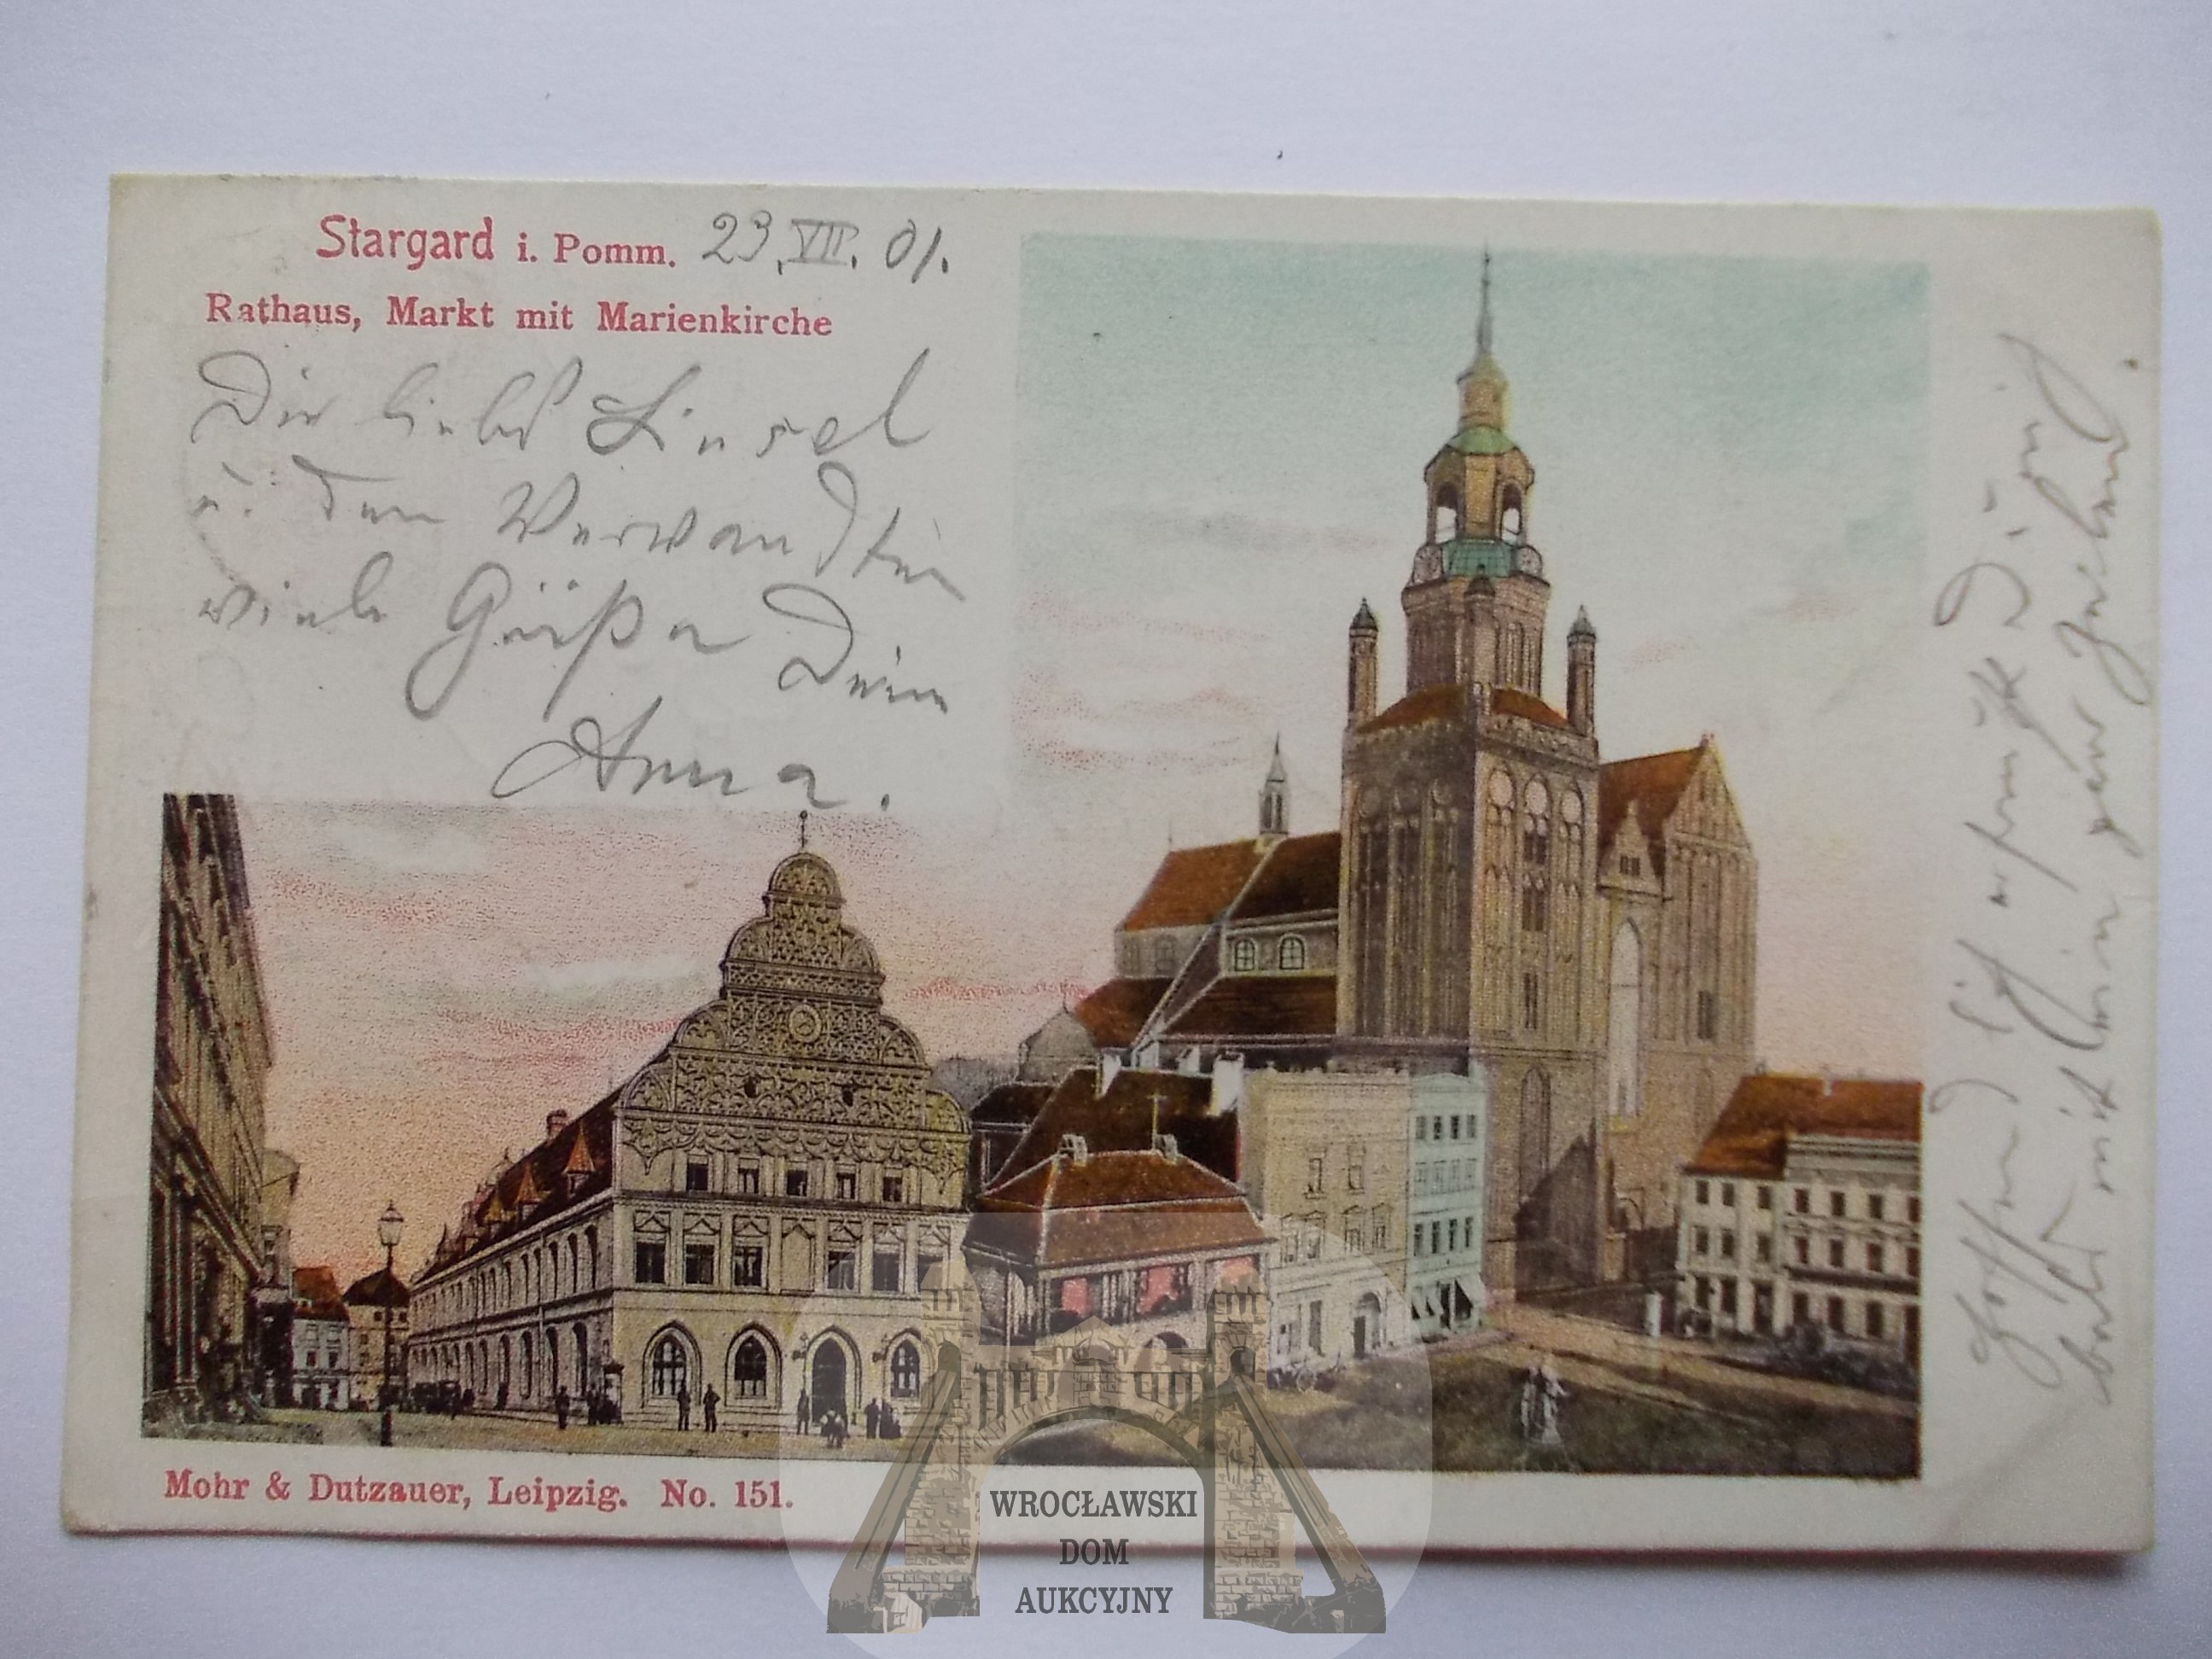 Stargard i. Pomm. 23.VII.01.
Rathaus, Markt mit Marienkirche
Dir liebes Liesel
u. den Verwandten
viele Grüße Deine
Anna.
Hoffend
bald mit
Mohr & Dutzauer, Leipzig. No. 151.
WROCŁAWSKI
DOM
AUKCYJNY